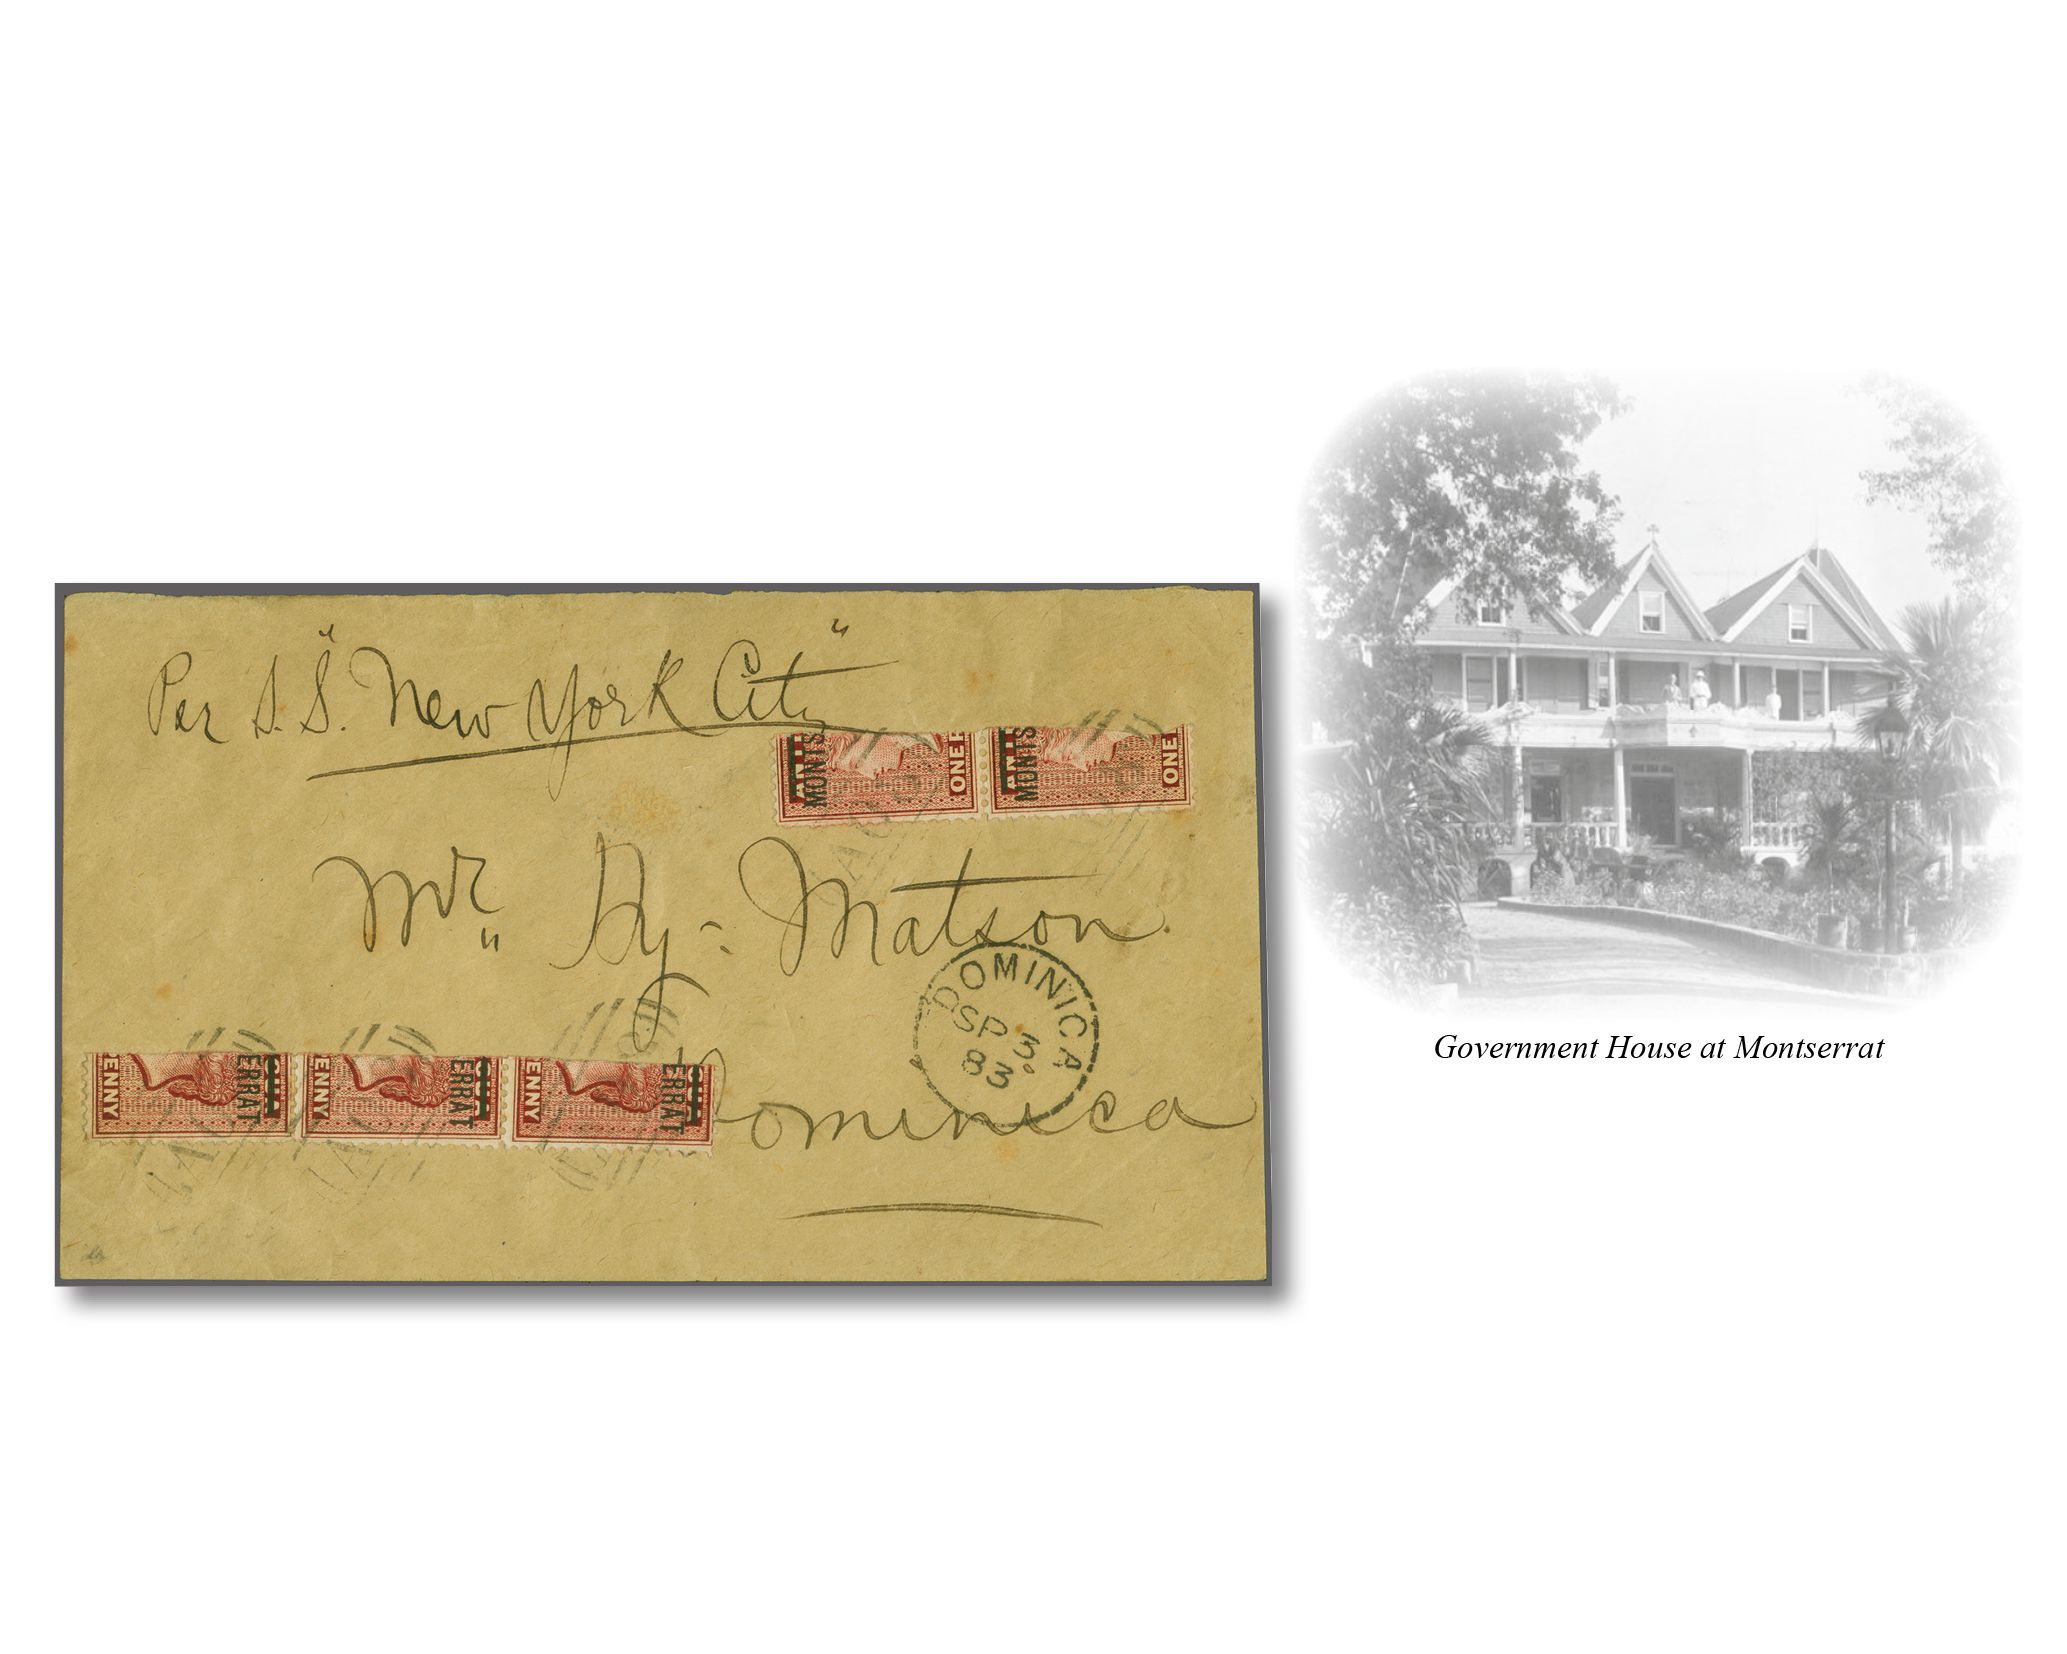 Per S.S. "New York City"
ANTI MONTS ONE P
ANTI MONTS ONE
Mr. Hy: Matson.
DOMINICA
D
SP 3
83
ENNY ERRAT GUA
ENNY ERRAT
ENNY ERRAT GUA
Dominica
Government House at Montserrat